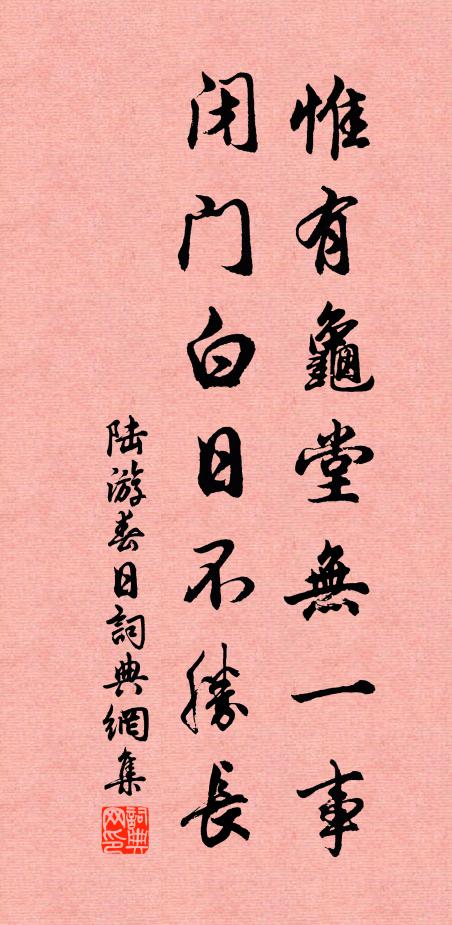 惟有龜堂無一事
闭门白日不勝長
陆游春日詞典網集
詞典网印